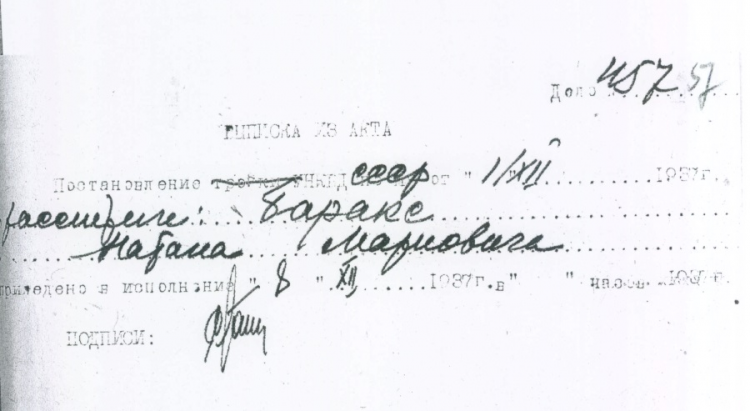 Дело 457 57
ВЫПИСКА ИЗ АКТА
Постановление тройки УНКВД СССР от "1/XII"..........1937г.
расстреле: Баракс
Натана Марковича
приведено в исполнение "8 "XII,......1937г.в" " час. 1937г.
ПОДПИСИ: